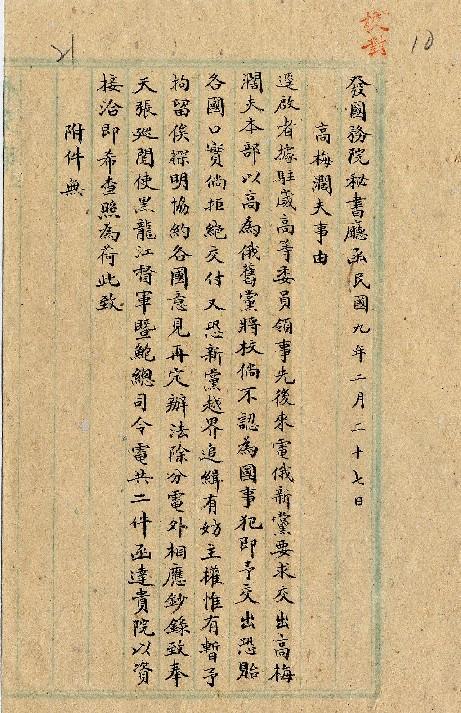 校對
10
21
發國務院秘書廳函民國九年二月二十七日
高梅濶夫事由
逕啟者據駐崴高等委員領事先後來電俄新黨要求交出高梅
濶夫本部以高為俄舊黨將校倘不認為國事犯即予交出恐貽
各國口實倘拒絕交付又恐新黨越界追緝有妨主權惟有暫予
拘留俟探明協約各國意見再定辦法除分電外相應鈔錄致奉
天張巡閱使黑龍江督軍暨鮑總司令電共二件函達貴院以資
接洽即希查照為荷此致
附件無